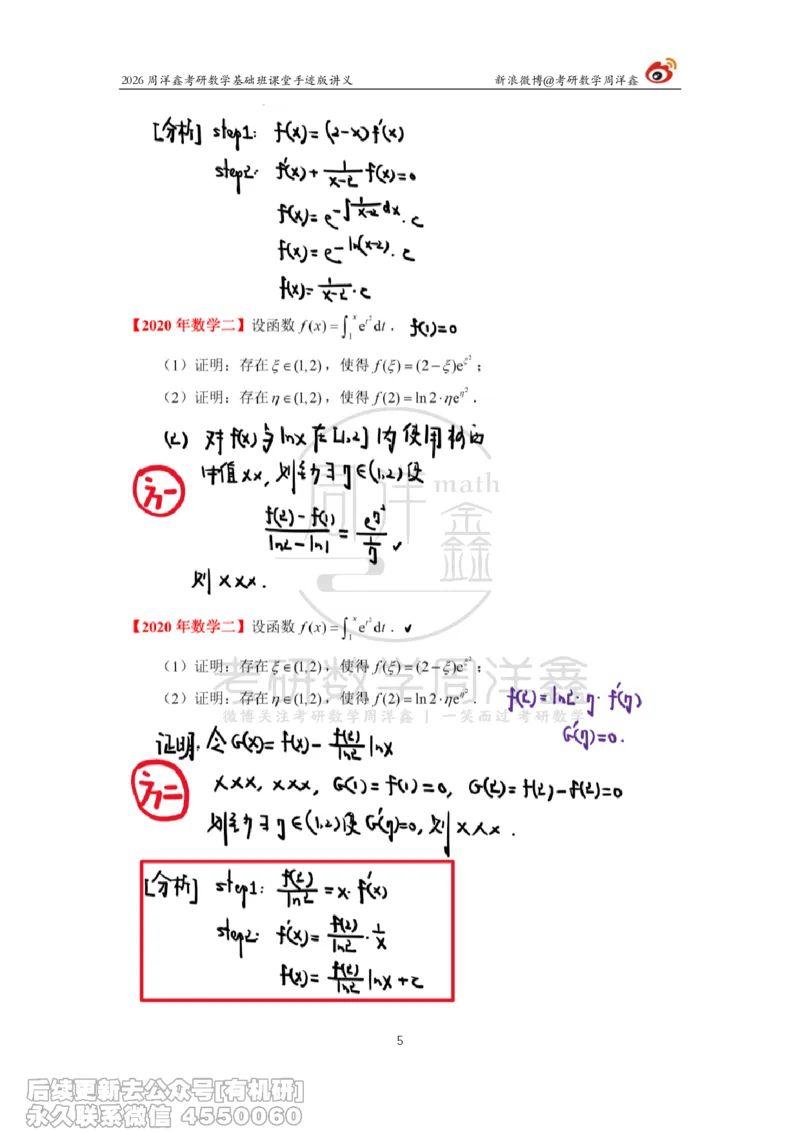 2026 周洋鑫考研数学基础班课堂手迹版讲义 新浪微博@考研数学周洋鑫
[分析] step1: f(x)=(2-x)f'(x)
step2: f'(x)+\frac{1}{x-2}f(x)=0
f(x)=e^{-\int\frac{1}{x-2}dx}·c
f(x)=e^{-ln(x-2)}·c
f(x)=\frac{1}{x-2}·c
【2020 年数学二】设函数 f(x)=\int_1^x e^{t^2}dt. f(1)=0
(1)证明:存在 ξ∈(1,2),使得 f(ξ)=(2-ξ)e^{ξ^2};
(2)证明:存在 η∈(1,2),使得 f(2)=ln2·ηe^{η^2}.
(2) 对f(x)与lnx在[1,2]内使用柯西
中值xx,则至少∃η∈(1,2)使
方一
\frac{f(2)-f(1)}{ln2-ln1}=\frac{e^{η^2}}{\frac{1}{η}} ✓
则xxx.
【2020 年数学二】设函数 f(x)=\int_1^x e^{t^2}dt. ✓
(1)证明:存在 ξ∈(1,2),使得 f(ξ)=(2-ξ)e^{ξ^2};
(2)证明:存在 η∈(1,2),使得 f(2)=ln2·ηe^{η^2}. f(2)=ln2·η·f'(η)
G'(η)=0.
证明:令G(x)=f(x)-\frac{f(2)}{ln2}lnx
方二
xxx,xxx,G(1)=f(1)=0,G(2)=f(2)-f(2)=0
则至少∃η∈(1,2)使G'(η)=0,则xxx.
[分析] step1: \frac{f(2)}{ln2}=x·f'(x)
step2: f'(x)=\frac{f(2)}{ln2}·\frac{1}{x}
f(x)=\frac{f(2)}{ln2}lnx+c
周洋 math
鑫
考研数学周洋鑫
微博关注考研数学周洋鑫 | 一笑而过 考研数学
5
后续更新去公众号[有机研]
永久联系微信 4550060